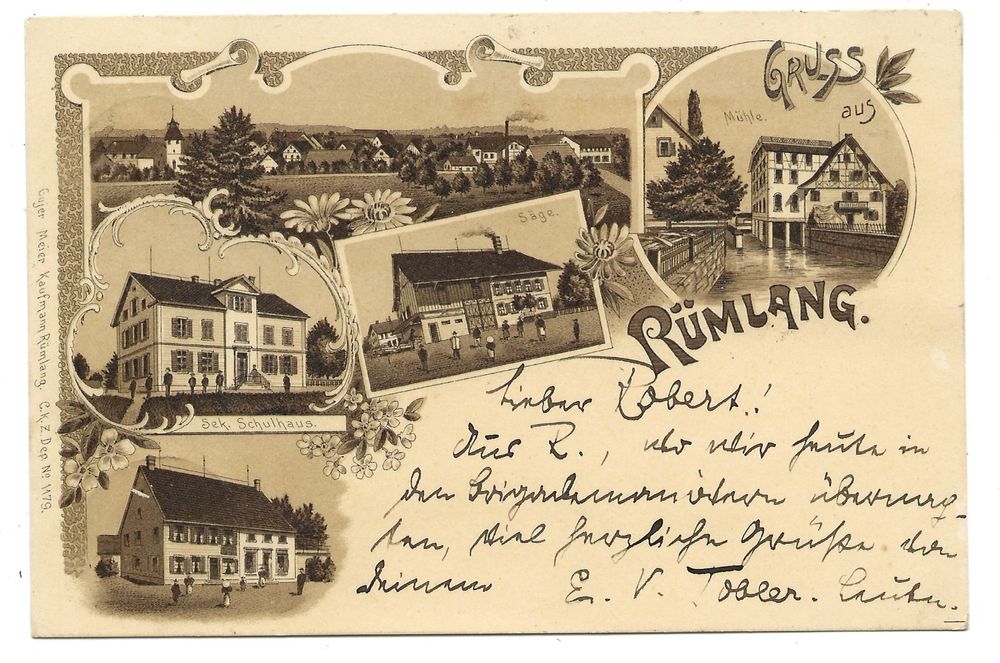 GRUSS
aus
Mühle.
Säge.
RÜMLANG.
Sek. Schulhaus.
Gujer Meier Kaufmann Rümlang. C.K.Z. Dep. No 1179.
Lieber Robert!
Aus R., wo wir heute in
den Brigademanövern übernach-
ten, viel herzliche Grüße von
deinem E. V. Tobler. Leutn.